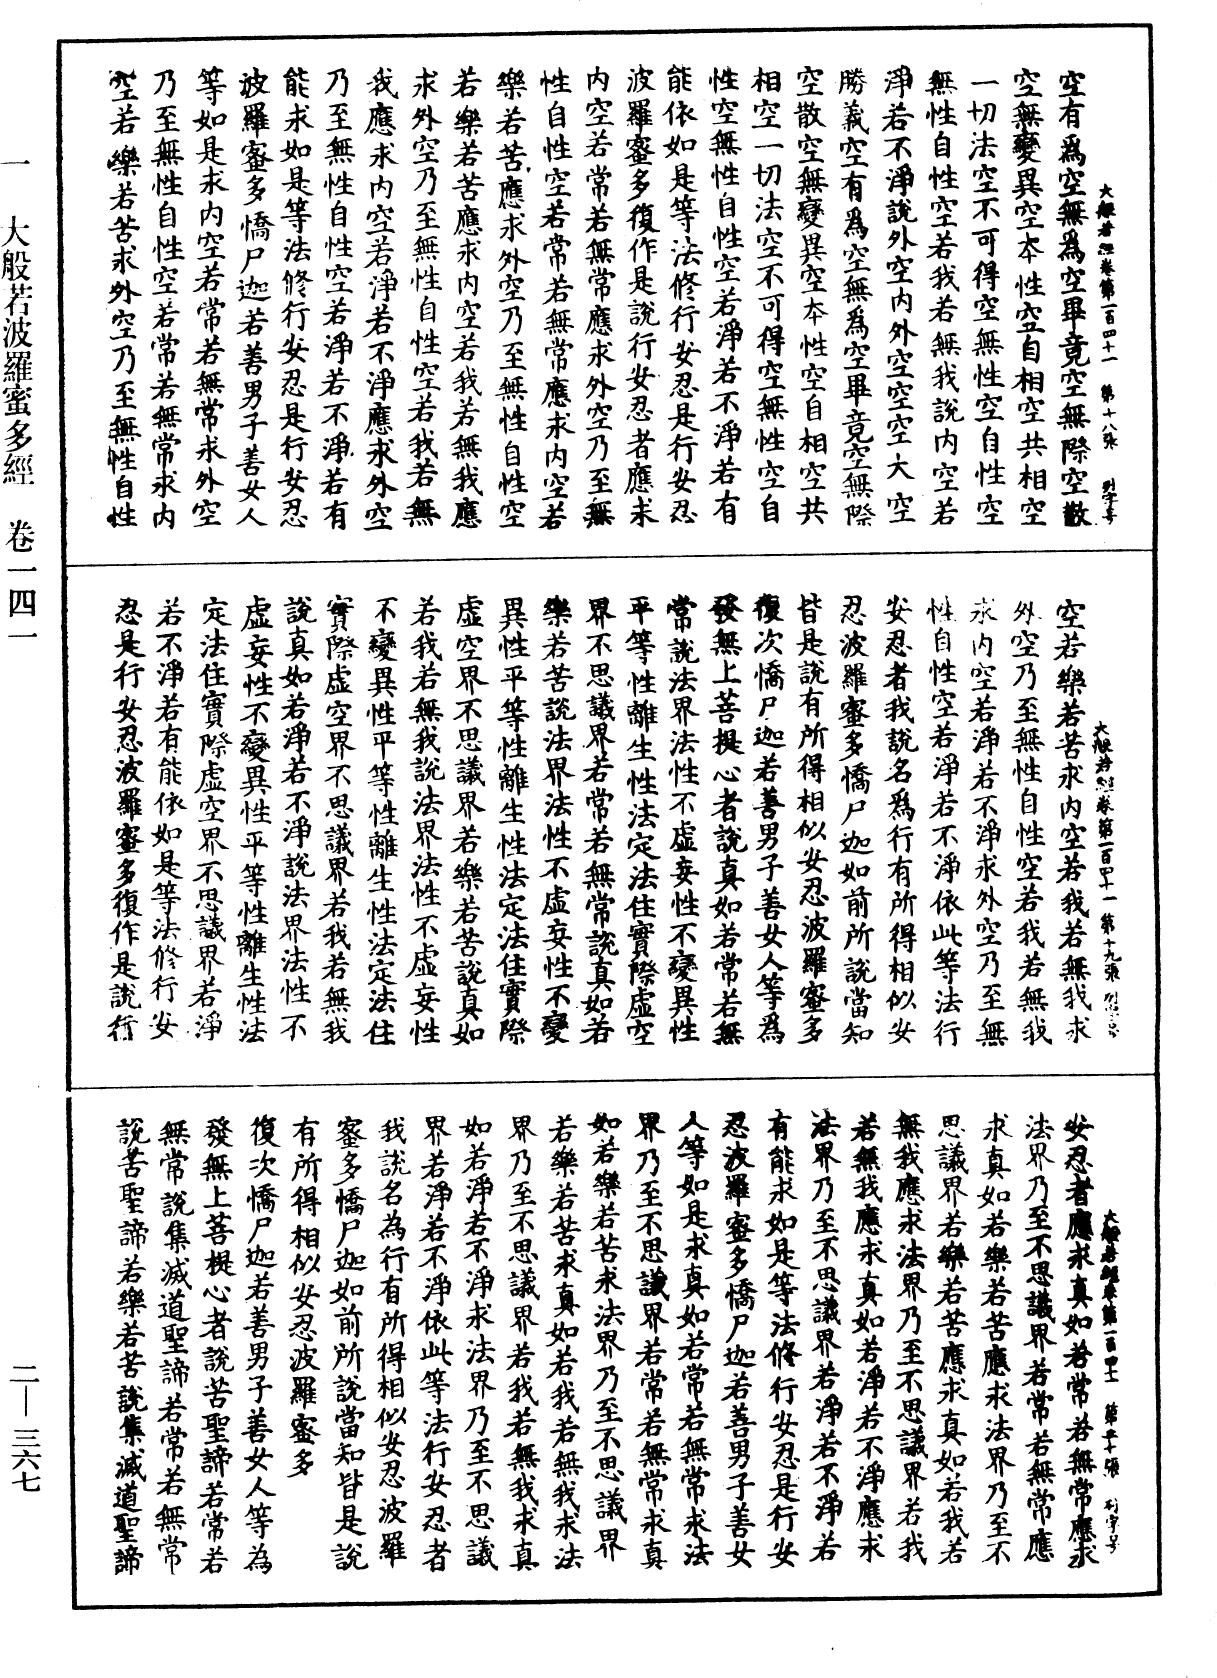 大般若經卷第一百四十一　第十八張　列字号
空有爲空無爲空畢竟空無際空散
空無變異空本性空自相空共相空
一切法空不可得空無性空自性空
無性自性空若我若無我說內空若
淨若不淨說外空內外空空空大空
勝義空有爲空無爲空畢竟空無際
空散空無變異空本性空自相空共
相空一切法空不可得空無性空自
性空無性自性空若淨若不淨若有
能依如是等法修行安忍是行安忍
波羅蜜多復作是說行安忍者應求
內空若常若無常應求外空乃至無
性自性空若常若無常應求內空若
樂若苦應求外空乃至無性自性空
若樂若苦應求內空若我若無我應
求外空乃至無性自性空若我若無
我應求內空若淨若不淨應求外空
乃至無性自性空若淨若不淨若有
能求如是等法修行安忍是行安忍
波羅蜜多憍尸迦若善男子善女人
等如是求內空若常若無常求外空
乃至無性自性空若常若無常求內
空若樂若苦求外空乃至無性自性
大般若經卷第一百四十一　第十九張　列字号
空若樂若苦求內空若我若無我求
外空乃至無性自性空若我若無我
求內空若淨若不淨求外空乃至無
性自性空若淨若不淨依此等法行
安忍者我說名爲行有所得相似安
忍波羅蜜多憍尸迦如前所說當知
皆是說有所得相似安忍波羅蜜多
復次憍尸迦若善男子善女人等爲
發無上菩提心者說真如若常若無
常說法界法性不虛妄性不變異性
平等性離生性法定法住實際虛空
界不思議界若常若無常說真如若
樂若苦說法界法性不虛妄性不變
異性平等性離生性法定法住實際
虛空界不思議界若樂若苦說真如
若我若無我說法界法性不虛妄性
不變異性平等性離生性法定法住
實際虛空界不思議界若我若無我
說真如若淨若不淨說法界法性不
虛妄性不變異性平等性離生性法
定法住實際虛空界不思議界若淨
若不淨若有能依如是等法修行安
忍是行安忍波羅蜜多復作是說行
大般若經卷第一百四十一　第二十張　列字号
安忍者應求真如若常若無常應求
法界乃至不思議界若常若無常應
求真如若樂若苦應求法界乃至不
思議界若樂若苦應求真如若我若
無我應求法界乃至不思議界若我
若無我應求真如若淨若不淨應求
法界乃至不思議界若淨若不淨若
有能求如是等法修行安忍是行安
忍波羅蜜多憍尸迦若善男子善女
人等如是求真如若常若無常求法
界乃至不思議界若常若無常求真
如若樂若苦求法界乃至不思議界
若樂若苦求真如若我若無我求法
界乃至不思議界若我若無我求真
如若淨若不淨求法界乃至不思議
界若淨若不淨依此等法行安忍者
我說名為行有所得相似安忍波羅
蜜多憍尸迦如前所說當知皆是說
有所得相似安忍波羅蜜多
復次憍尸迦若善男子善女人等為
發無上菩提心者說苦聖諦若常若
無常說集滅道聖諦若常若無常
說苦聖諦若樂若苦說集滅道聖諦
一　大般若波羅蜜多經　卷一四一
二—三六七